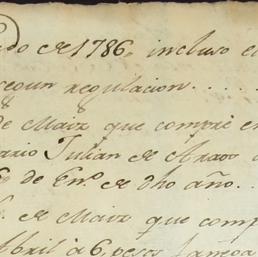 do de 1786, incluso e
segun regulacion.....
de Maiz que compré en
ario Julian de Araoz
de En.º de dho año..
de Maiz que comp
Abril à 6, pesos fanega